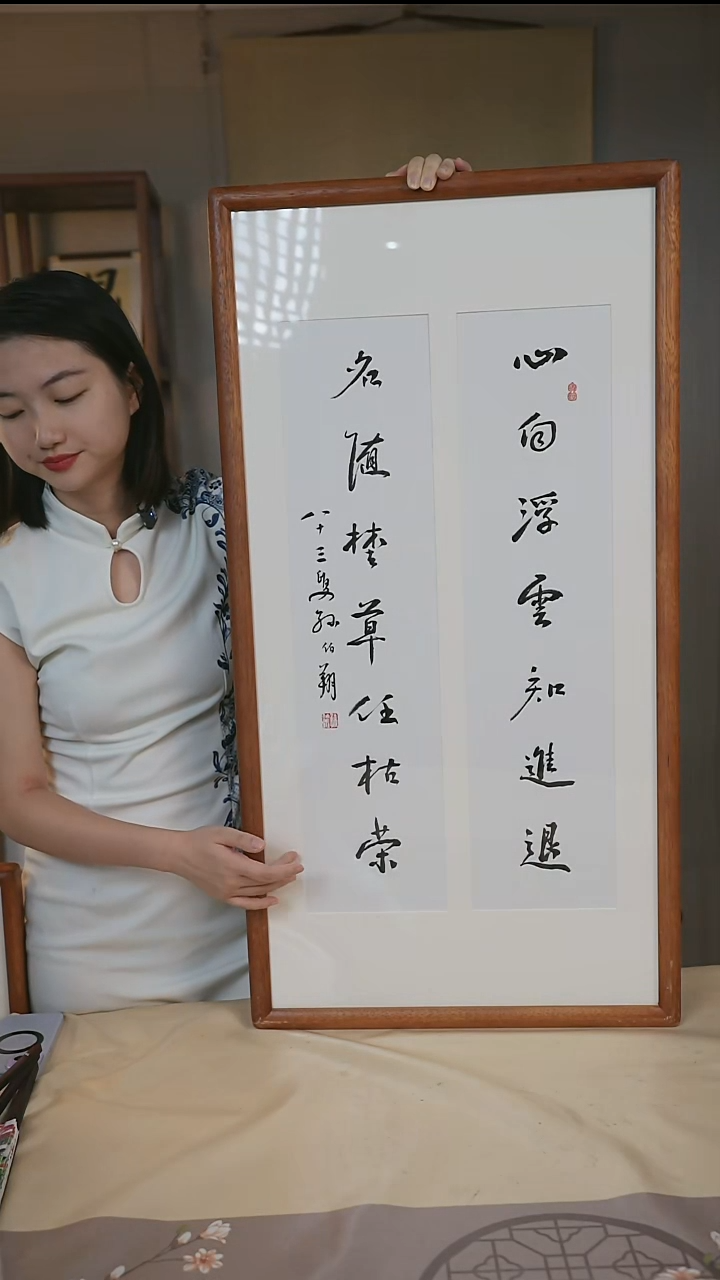 心向浮雲知進退
名随埜草任枯荣
八十三叟孙伯翔